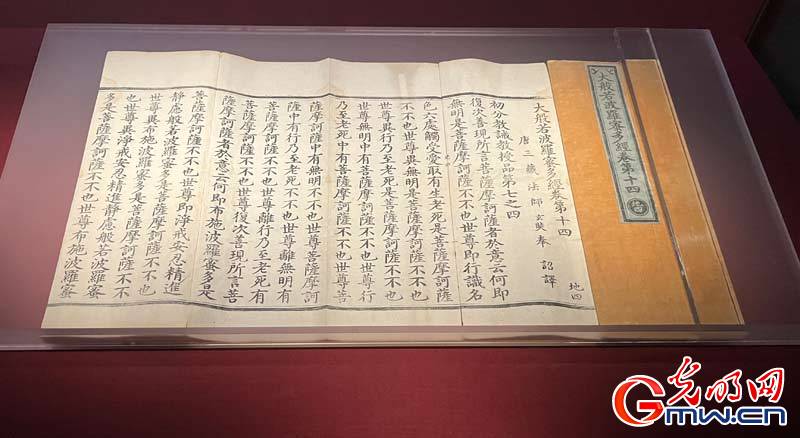 大般若波羅蜜多經卷第十四
大般若波羅蜜多經卷第十四
地四
唐三藏法師玄奘奉 詔譯
初分教誡教授品第七之四
復次善現所言菩薩摩訶薩者於意云何即
無明是菩薩摩訶薩不不也世尊即行識名
色六處觸受愛取有生老死是菩薩摩訶薩
不不也世尊異無明是菩薩摩訶薩不不也
世尊異行乃至老死是菩薩摩訶薩不不也
世尊無明中有菩薩摩訶薩不不也世尊行
乃至老死中有菩薩摩訶薩不不也世尊菩
薩摩訶薩中有無明不不也世尊菩薩摩訶
薩中有行乃至老死不不也世尊離無明有
菩薩摩訶薩不不也世尊離行乃至老死有
菩薩摩訶薩不不也世尊復次善現所言菩
薩摩訶薩者於意云何即布施波羅蜜多是
菩薩摩訶薩不不也世尊即淨戒安忍精進
靜慮般若波羅蜜多是菩薩摩訶薩不不也
世尊異布施波羅蜜多是菩薩摩訶薩不不
也世尊異淨戒安忍精進靜慮般若波羅蜜
多是菩薩摩訶薩不不也世尊布施波羅蜜
光明网
Gmw.cn